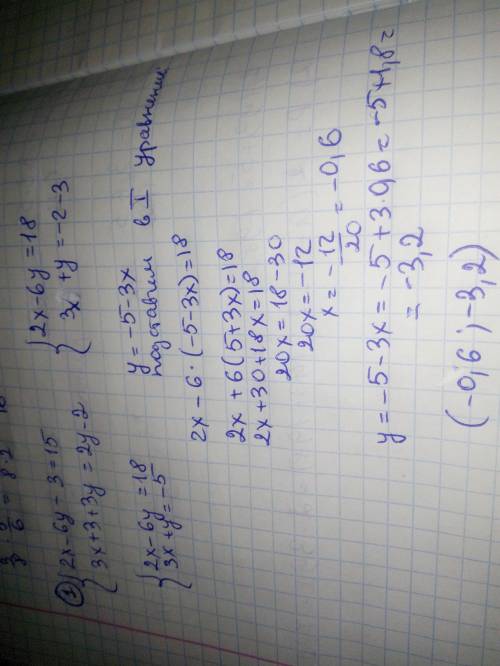 ① { 2x-6y-3=15
3x+3+3y=2y-2
{ 2x-6y=18
3x+y=-2-3
{ 2x-6y=18
3x+y=-5
y=-5-3x
подставим в I уравнение
2x-6·(-5-3x)=18
2x+6(5+3x)=18
2x+30+18x=18
20x=18-30
20x=-12
x=-12/20=-0,6
y=-5-3x=-5+3·0,6=-5+1,8=
=-3,2
(-0,6;-3,2)